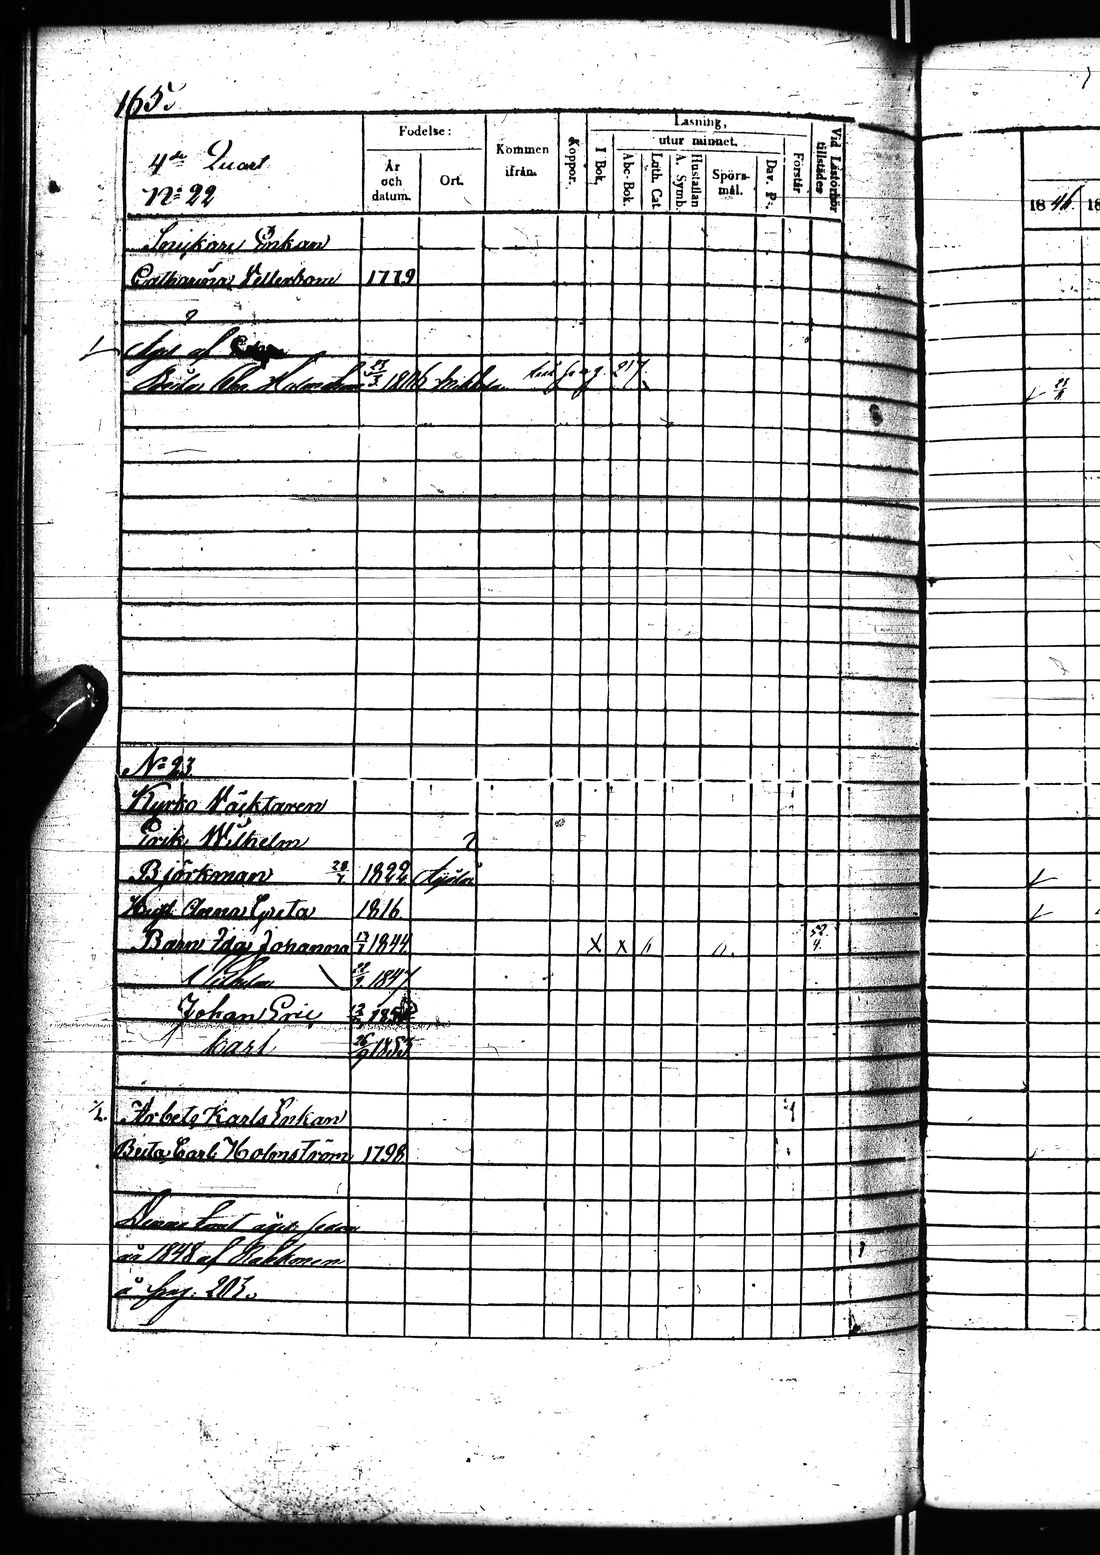 165.
4de Quart
No 22
Födelse:
År och datum.
Ort.
Kommen ifrån.
Koppor.
Läsning,
utur minnet.
I Bok.
Abc-Bok.
Luth. Cat.
Hustaflan A. Symb.
Spörsmål.
Dav. Ps.
Förstår
Vid Läsförhör tillstädes
1846
18
Snickare Enkan
Catharina Vetterbom 1779
af
Holmström 27/3 1806 pag. 217.
No 23
Kyrko Väcktaren
Erik Wilhelm
Björkman 28/7 1822
Hust. Anna Greta 1816
Barn Ida Johanna 1844 x x 52/4.
Wilhelm 1847
Johan Eric
Karl 26/9 1853
Arbets Karls Enkan
Brita Carls Holmström 1798
Denna äges sedan
år 1848 af
å pag. 203.